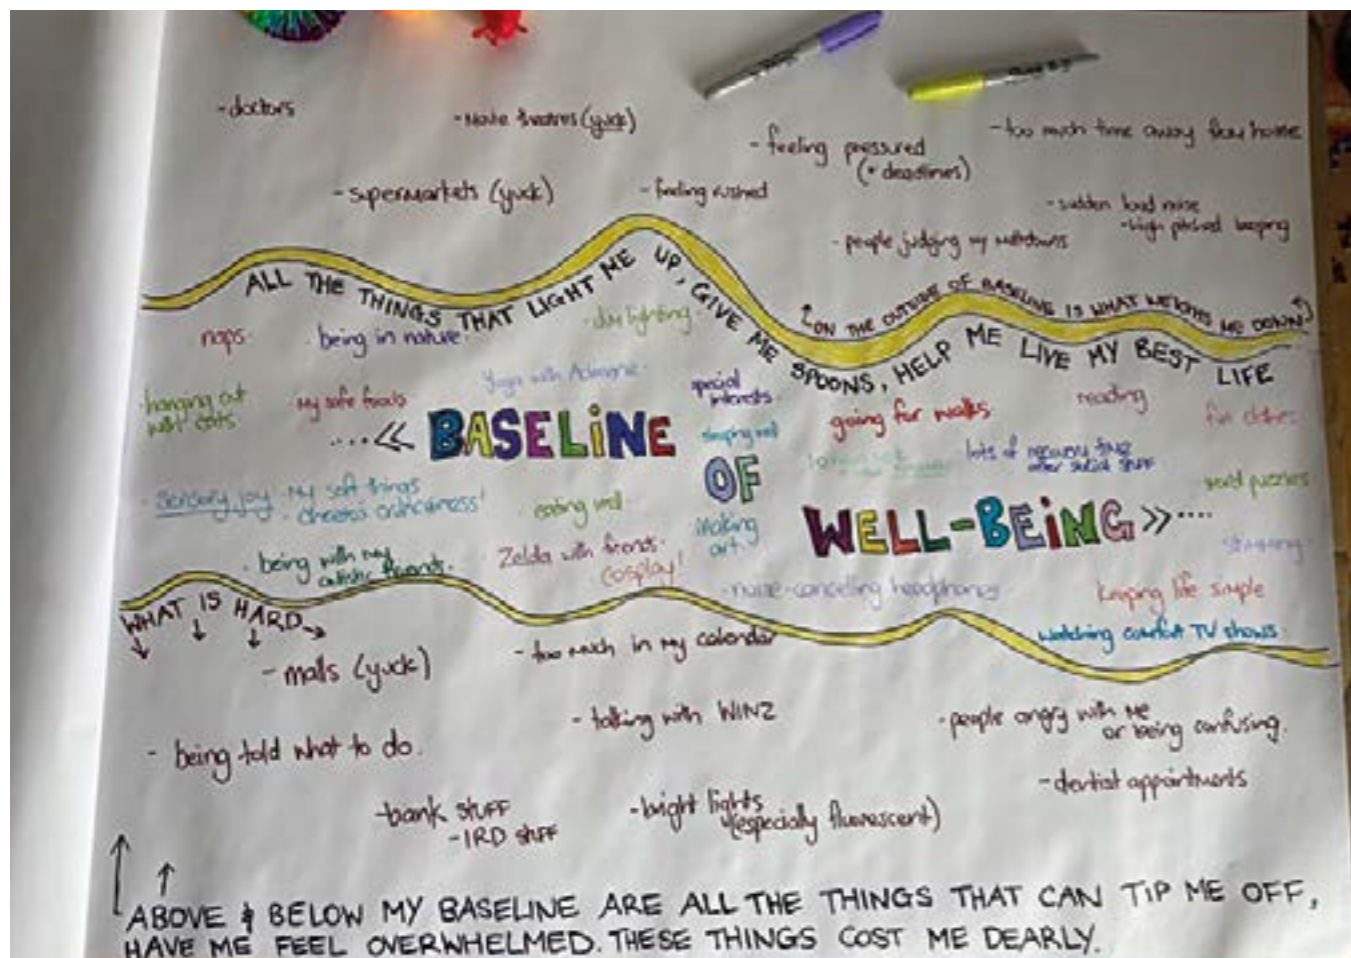 - doctors
- Movie theatres (yuck)
- feeling pressured
(+ deadlines)
- too much time away from home
- supermarkets (yuck)
- feeling rushed
- sudden loud noise
- high pitched beeping
- people judging my meltdowns
ALL THE THINGS THAT LIGHT ME UP, GIVE ME SPOONS, HELP ME LIVE MY BEST LIFE
ON THE OUTSIDE OF BASELINE IS WHAT WEIGHS ME DOWN
naps
being in nature
dim lighting
Yoga with Adriene
special interests
hanging out with cats
My safe foods
going for walks
reading
fun clothes
BASELINE
sleeping well
lots of recovery time
after social stuff
OF
word puzzles
Sensory joy - My soft things
- cheetos crunchiness!
eating well
Making art
WELL-BEING
stimming
being with my
autistic friends
Zelda with friends
cosplay!
noise-cancelling headphones
keeping life simple
watching comfort TV shows
WHAT IS HARD
- malls (yuck)
- too much in my calendar
- talking with WINZ
- people angry with me
or being confusing.
- being told what to do.
- dentist appointments
- bank stuff
- IRD stuff
- bright lights
(especially fluorescent)
ABOVE & BELOW MY BASELINE ARE ALL THE THINGS THAT CAN TIP ME OFF,
HAVE ME FEEL OVERWHELMED. THESE THINGS COST ME DEARLY.